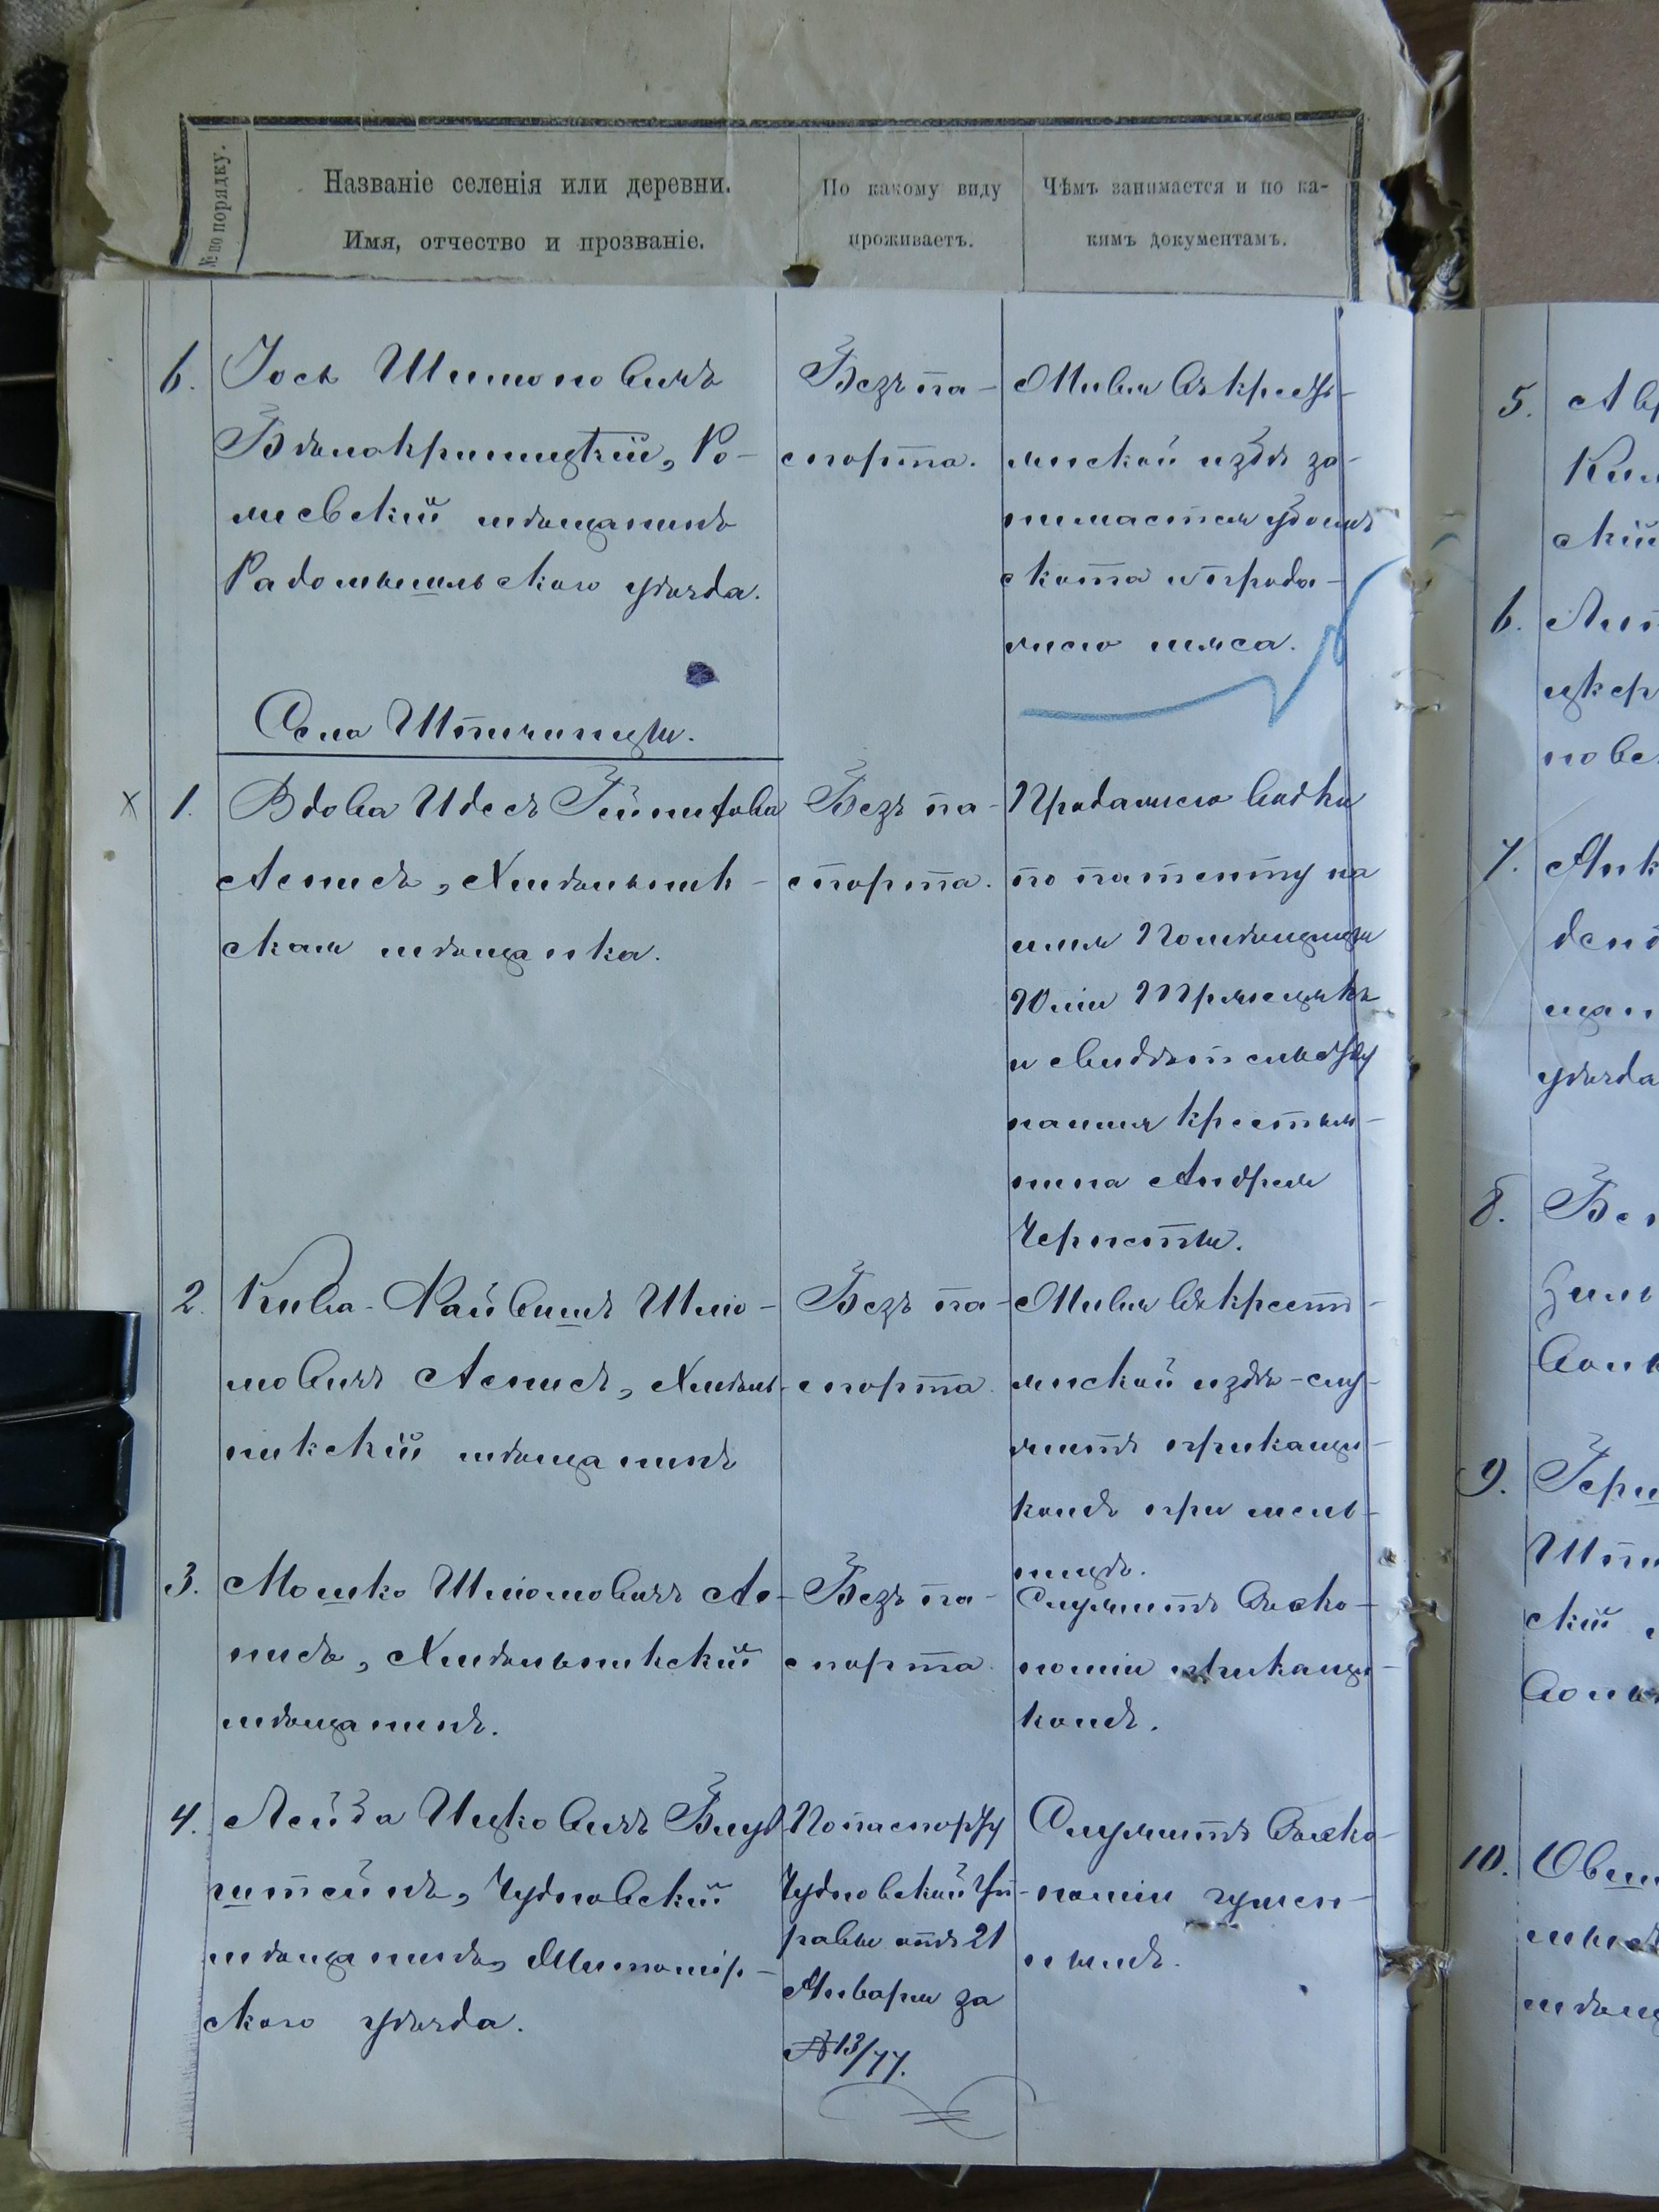 № по порядку.
Названіе селенія или деревни.
Имя, отчество и прозваніе.
По какому виду
проживаетъ.
Чѣмъ занимается и по ка-
кимъ документамъ.
6.
Іось Шимоновичъ
Бѣлокриницкій, Ро-
мевскій мѣщанинъ
Радомышльскаго уѣзда.
Безъ па-
спорта.
Живя въ кресть-
янской избѣ за-
нимается убоемъ
скота и прода-
жею мяса.
Село Шпичинцы.
1.
Вдова Идесъ
Аснисъ, Хмѣльник-
ская мѣщанка.
Безъ па-
спорта.
Продажею водки
по патенту на
имя Помѣщицы
Юліи
и свидѣтельству
на имя крестья-
нина Андрея
2.
Кива-Лайвишъ Шліо-
мовичъ Аснисъ, Хмѣль-
никскій мѣщанинъ
Безъ па-
спорта
Живя въ крестъ-
янской избѣ-слу-
житъ прикащи-
комъ при мель-
ницѣ.
3.
Мошко Шліомовичъ Ас-
нисъ, Хмѣльникскій
мѣщанинъ.
Безъ па-
спорта
Служитъ въ эко-
номіи прикащи-
комъ.
4.
Лейба Ицковичъ
Чудновскій
мѣщанинъ, Житомір-
скаго уѣзда.
По паспорту
Чудновской Уп-
равы отъ 21
Января за
№ 13/77.
Служитъ въ эко-
номіи гумен-
нымъ.
5.
6.
7.
8.
9.
10.
скій
уѣзда